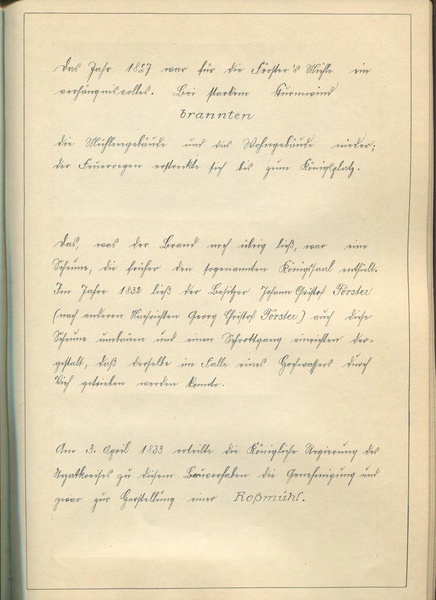 Das Jahr 1827 war für die Förster's Mühle ein
verhängnisvolles. Bei starkem Sturmwind
brannten
die Mühlengebäude und das Wohngebäude nieder;
der Feuerregen erstreckte sich bis zum Königsplatz.
Das, was der Brand noch übrig ließ, war eine
Scheune, die früher den sogenannten Königssaal enthielt.
Im Jahre 1832 ließ der Besitzer Johann Christof Förster
(nach anderen Nachrichten Georg Christof Förster) auch diese
Scheune umbauen und einen Schrottgang einrichten der-
gestalt, daß derselbe im Falle eines Hochwassers durch
Vieh getrieben werden konnte.
Am 3. April 1833 erteilte die Königliche Regierung des
Rezatkreises zu diesem Bauvorhaben die Genehmigung und
zwar zur Herstellung einer Roßmühl.